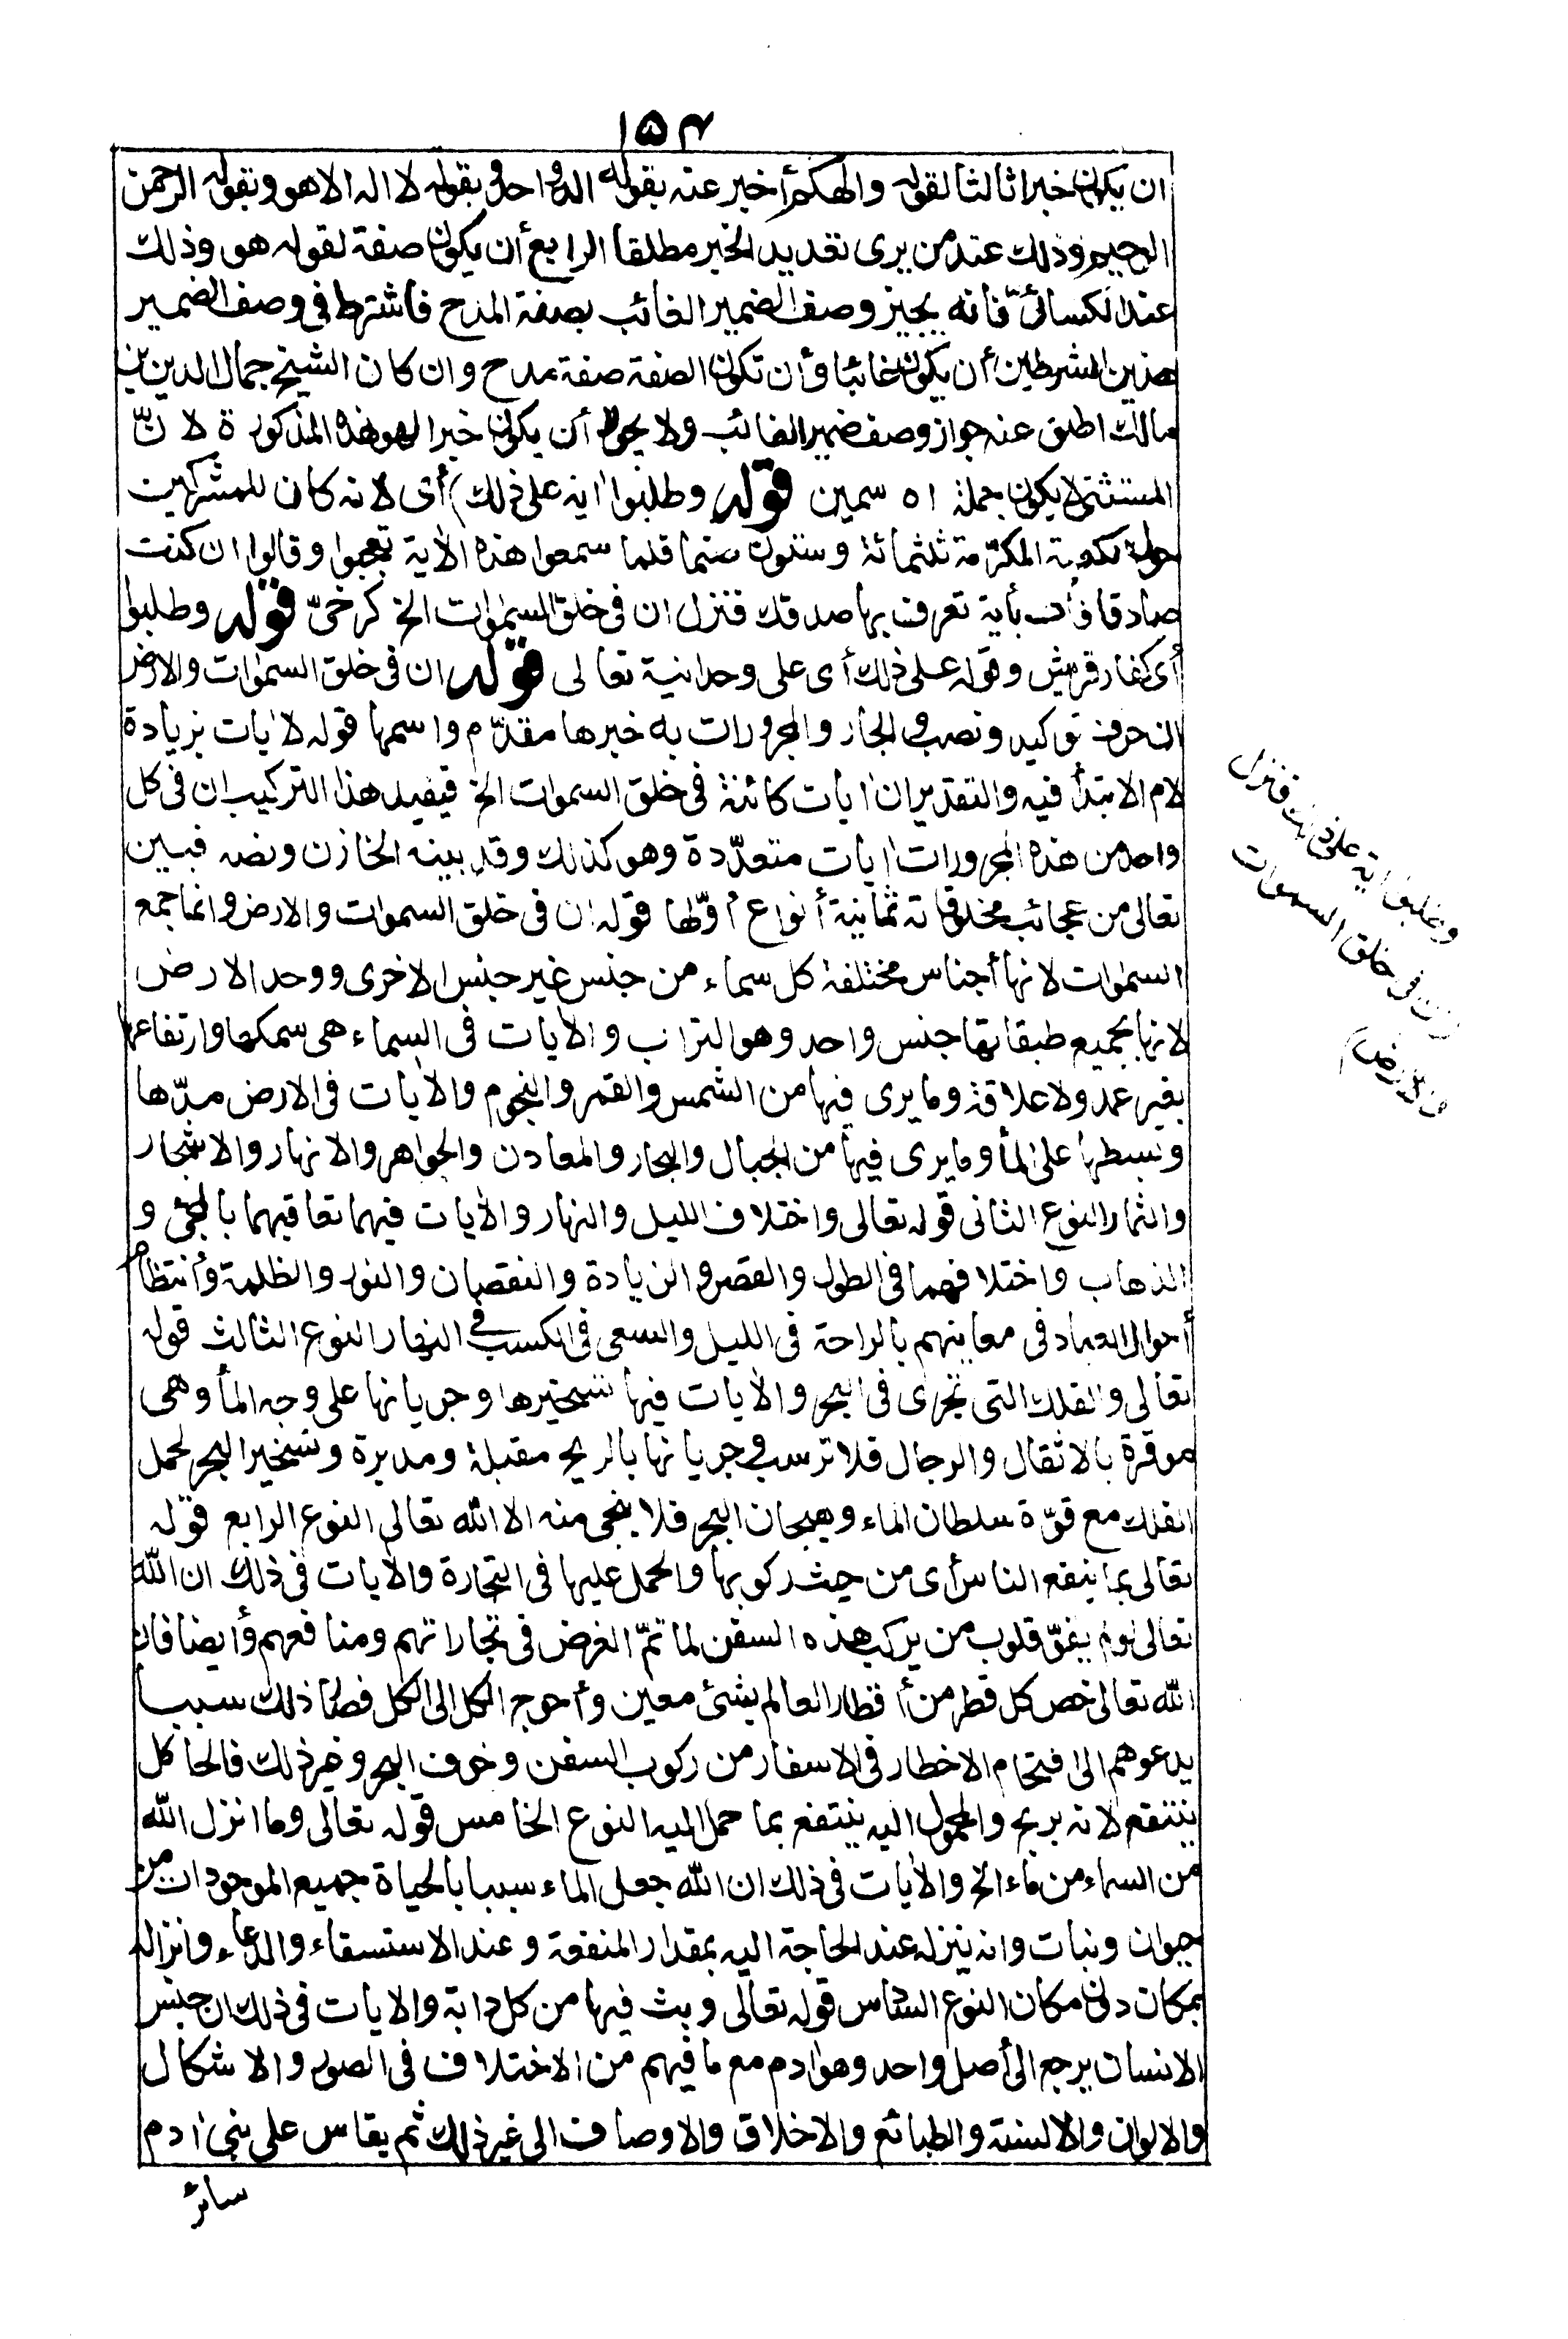 ١٥٤
ان يكون خبرا ثالثا لقوله والهكم أخبر عنه بقوله اله واحد وبقوله لا اله الا هو وبقوله الرحمن
الرحيم وذلك عند من يرى تعديد الخبر مطلقا الرابع أن يكون صفة لقوله هو وذلك
عند الكسائىّ فانه يجيز وصف الضمير الغائب بصفة المدح فاشترط فى وصف الضمير
هذين الشرطين أن يكون غائبا وأن تكون الصفة صفة مدح وان كان الشيخ جمال الدين بن
مالك اطلق عنه جواز وصف ضمير الغائب ولا يجوز أن يكون خبرا لهو هذه المذكورة لانّ
المستثنى لا يكون جملة اه سمين قوله وطلبوا اية على ذلك) أى لانه كان للمشركين
حول الكعبة المكرّمة ثلثمائة وستون صنما فلما سمعوا هذه الأية تعجبوا وقالوا ان كنت
صادقا فأت بأية تعرف بها صدقك فنزل ان فى خلق السمٰوات الخ كرخىّ قوله وطلبوا
أى كفار قريش وقوله على ذلك أى على وحدانية تعالى قوله ان فى خلق السمٰوات والارض
الخ حرف توكيد ونصب والجار والمجرورات به خبرها مقدّم واسمها قوله لايات بزيادة
لام الابتدأ فيه والتقدير ان ايات كائنة فى خلق السموات الخ فيفيد هذا التركيب ان فى كل
واحد من هذه المجرورات ايات متعدّدة وهو كذلك وقد بينه الخازن ونصه فبين
تعالى من عجائب مخلوقاته ثمانية أنواع أوّلها قوله ان فى خلق السموات والارض وانما جمع
السمٰوات لانها أجناس مختلفة كل سماء من جنس غير جنس الاخرى ووحد الارض
لانها بجميع طبقاتها جنس واحد وهو التراب والأيات فى السماء هى سمكها وارتفاعها
بغير عمد ولا علاقة وما يرى فيها من الشمس والقمر والنجوم والأيات فى الارض مدّها
وبسطها على المأ وما يرى فيها من الجبال والبحار والمعادن والجواهر والانهار والاشجار
والثمار النوع الثانى قوله تعالى واختلاف الليل والنهار والأيات فيهما تعاقبهما بالمجئ و
الذهاب واختلافهما فى الطول والقصر والزيادة والنقصان والنور والظلمة وأنتظام
أحوال العباد فى معاينهم بالراحة فى الليل والسعى فى الكسب فى النهار النوع الثالث قوله
تعالى والفلك التى تجرى فى البحر والأيات فيها تسخيرها وجريانها على وجه المأ وهى
موقرة بالاثقال والرجال فلا ترسب وجريانها بالريح مقبلة ومدبرة وتسخير البحر لحمل
الفلك مع قوّة سلطان الماء وهيجان البحر فلا ينجى منه الا الله تعالى النوع الرابع قوله
تعالى بما ينفع الناس أى من حيث ركوبها والحمل عليها فى التجارة والأيات فى ذلك ان الله
تعالى لو لم يقوّ قلوب من يركب هذه السفن لما تمّ الغرض فى تجاراتهم ومنافعهم وأيضا فان
الله تعالى خص كل قطر من أقطار العالم بشئ معين وأحوج الكل الى الكل فصار ذلك سببا
يدعوهم الى اقتحام الاخطار فى الاسفار من ركوب السفن وخوف البحر وغير ذلك فالحاكل
ينتفع لانه يربح والمحمول اليه ينتفع بما حمل اليه النوع الخامس قوله تعالى وما انزل الله
من السماء من ماء الخ والأيات فى ذلك ان الله جعل الماء سببا بالحياة جميع الموجودات من
حيوان ونبات وانه ينزله عند الحاجة اليه بمقدار المنفعة وعند الاستسقاء والدعاء وانزاله
بمكان دون مكان النوع السادس قوله تعالى وبث فيها من كل دابة والايات فى ذلك ان جنس
الانسان يرجع الى أصل واحد وهو ادم مع ما فيهم من الاختلاف فى الصور والاشكال
والالوان والالسنة والطبائع والاخلاق والاوصاف الى غير ذلك ثم يقاس على بنى ادم
سائر
وطلبوا اية على ذلك فنزل
ان فى خلق السموات
والارض)